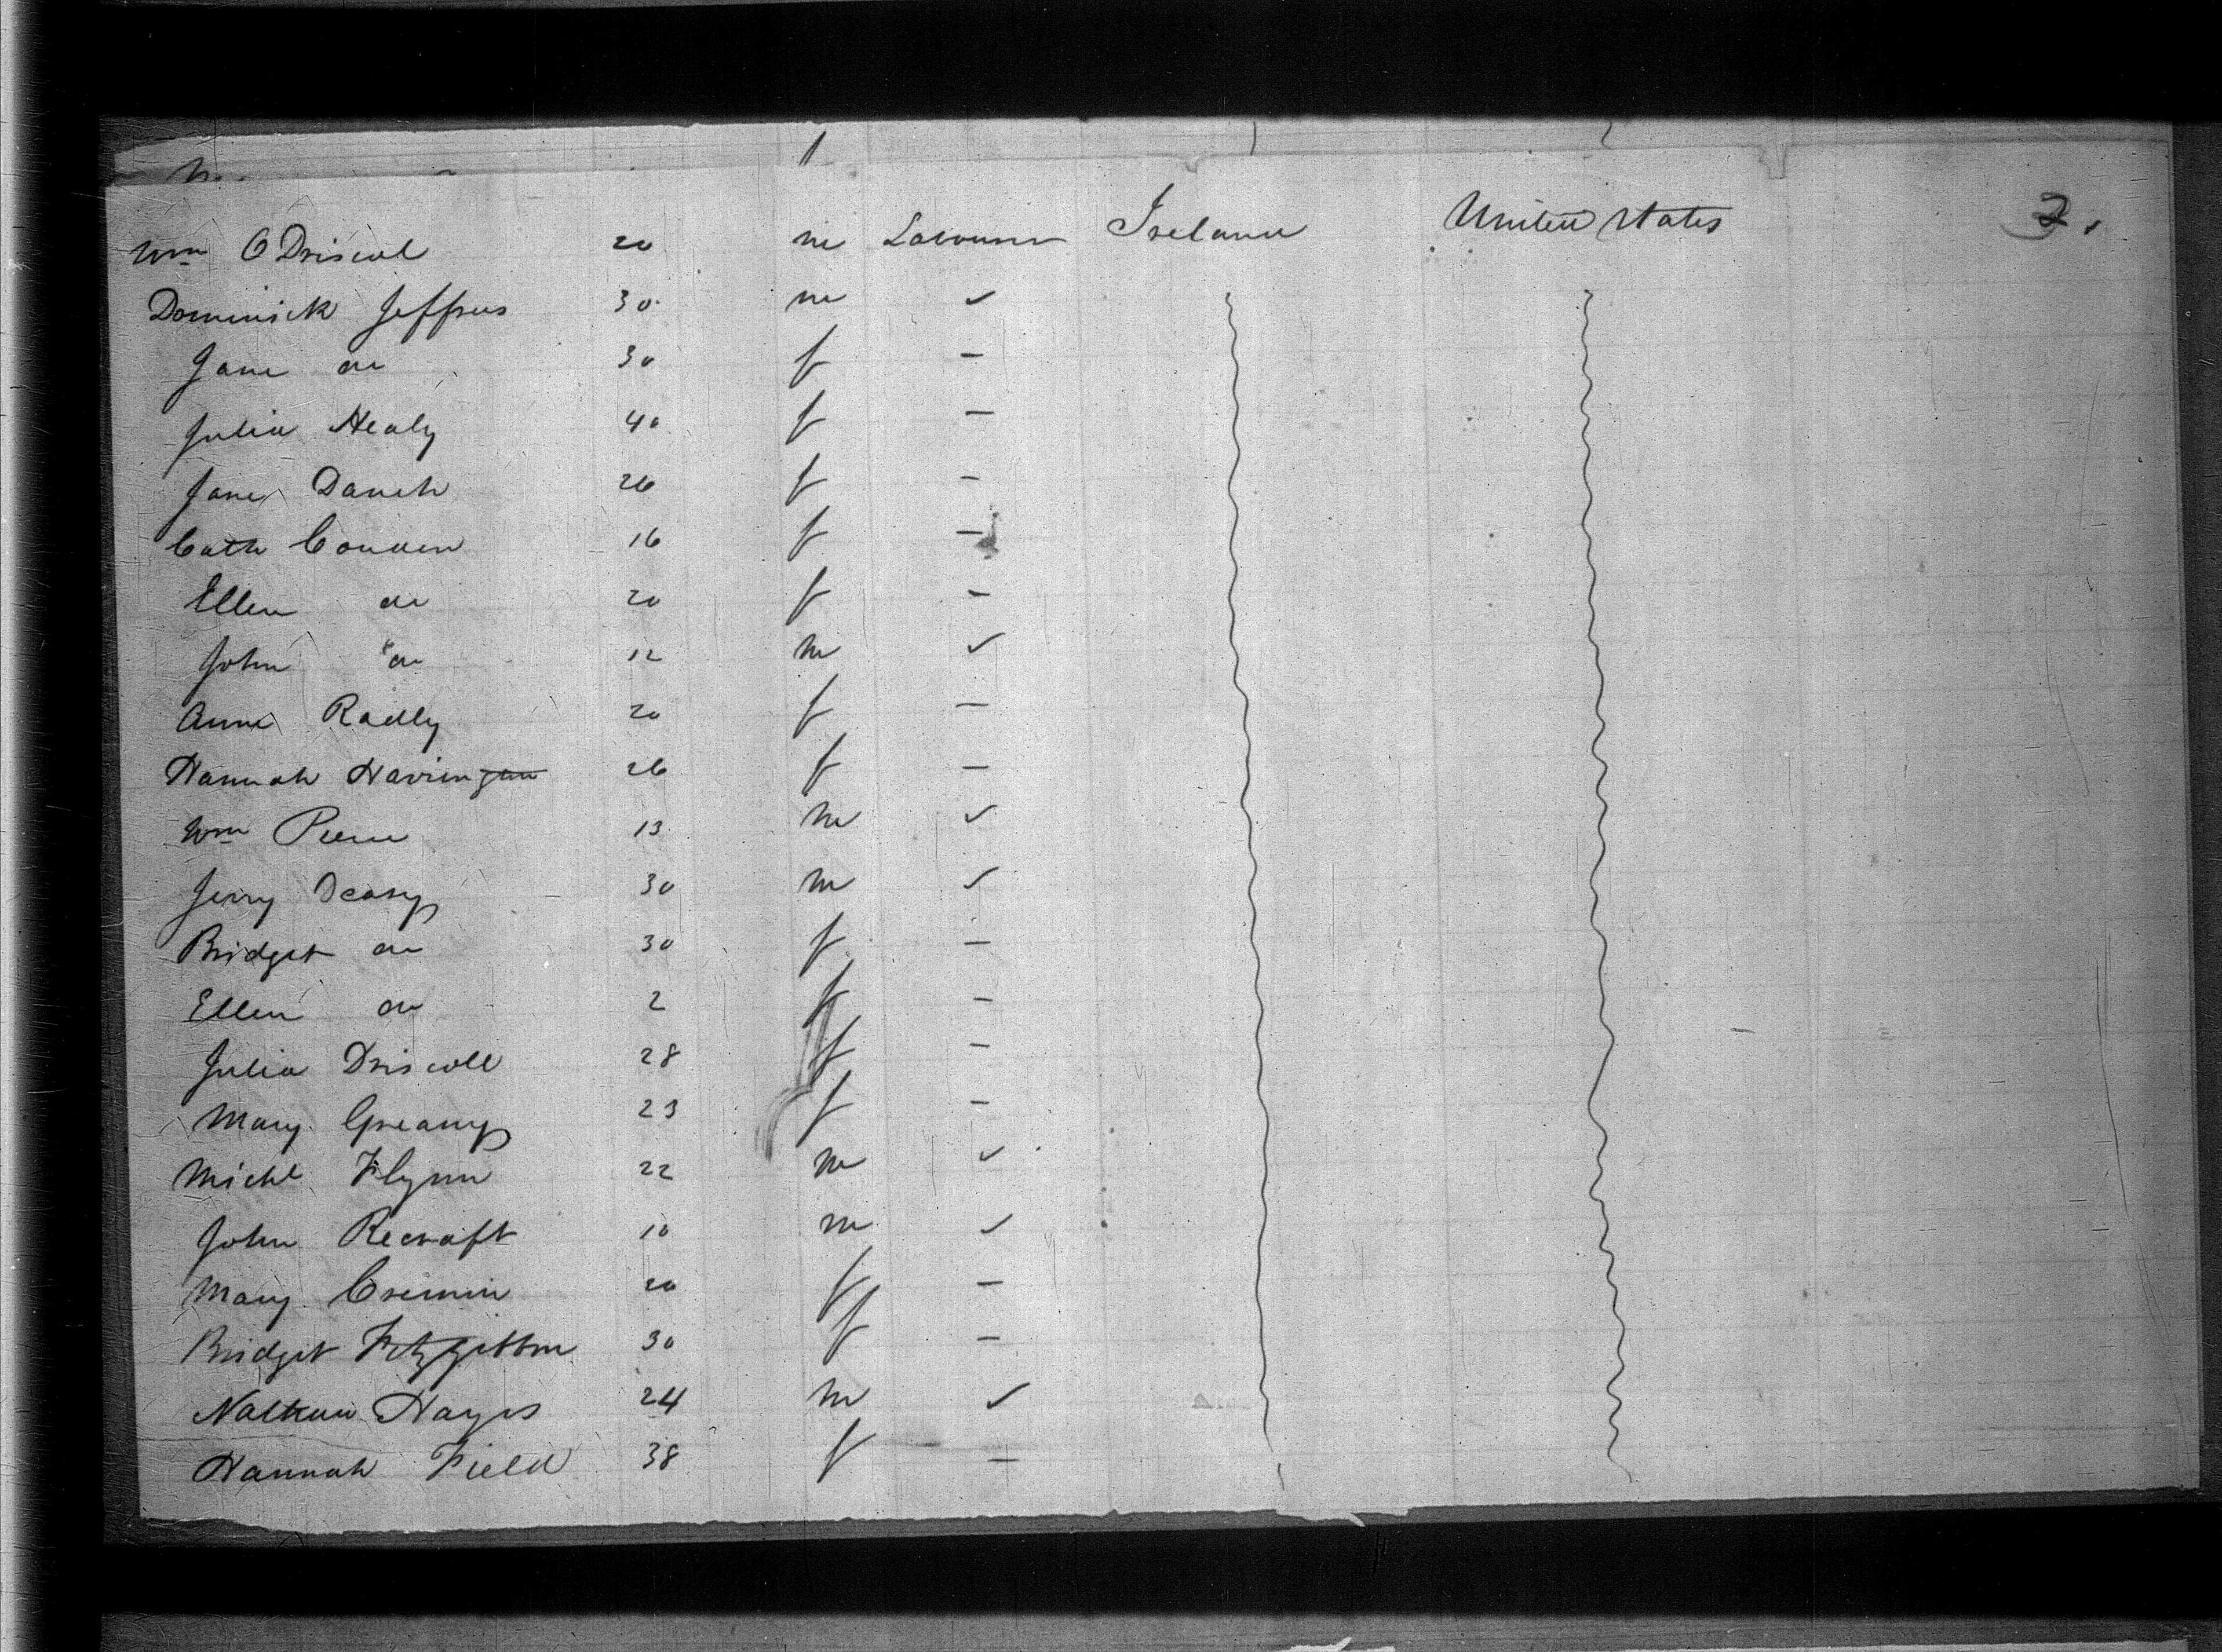 2.
Wm O Driscol 20 m Labourer Ireland United States
Dominick Jeffries 30 m ✓
Jane do 30 f —
Julia Healy 40 f —
Jane 26 f —
Cath Condon 16 f —
Ellen do 20 f —
John do 12 m ✓
Anne Radly 20 f —
Hannah Harrington 26 f —
Wm Pierce 13 m ✓
Jerry Deasy 30 m ✓
Bridget do 30 f —
Ellen do 2 f —
Julia Driscoll 28 f —
Mary Greany 23 f —
Michl Flynn 22 m ✓
John Recraft 10 m ✓
Mary Cremin 20 f —
Bridget Fitzgibbon 30 f —
Hayes 24 m ✓
Hannah Field 38 f —